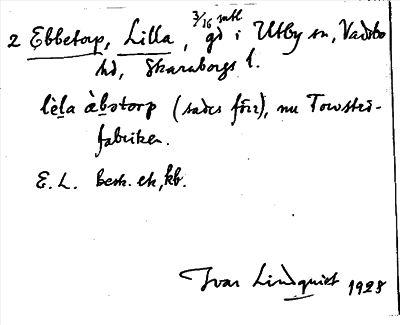 2 Ebbetorp, Lilla, 3/16 mtl gd i Utby sn, Vadsbo
hd, Skaraborgs l.
lèla àbətorp (sades förr), nu Torvströ-
fabriken.
E. L. Besk. ek, kb.
Ivar Lindquist 1928